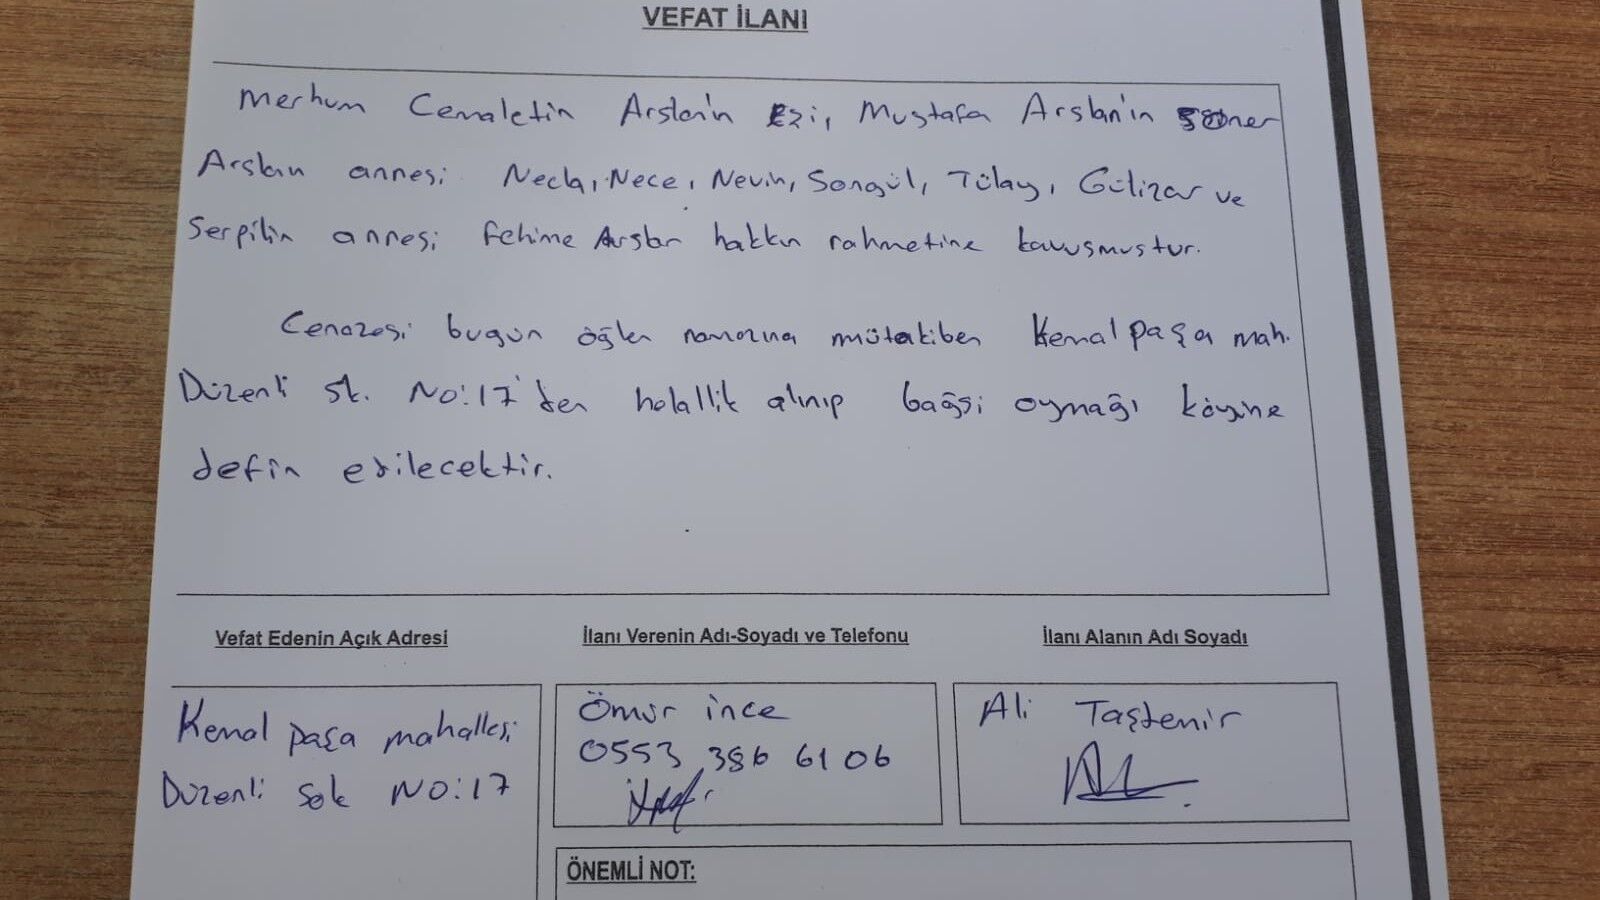 VEFAT İLANI
Merhum Cemaletin Arslan'ın Ezi, Mustafa Arslan'ın Soner
Arslan annesi Necla, Nece, Nevin, Songül, Tülay, Gülizar ve
Serpilin annesi Fehime Arslan hakkın rahmetine kavuşmuştur.
Cenazesi bugün öğlen namazına mütakiben Kemal paşa mah.
Düzenli sk. No:17'den helallik alınıp bağsi oymağı köyüne
defin edilecektir.
Vefat Edenin Açık Adresi
İlanı Verenin Adı-Soyadı ve Telefonu
İlanı Alanın Adı Soyadı
Kemal paşa mahallesi
Düzenli sok No:17
Ömür ince
0553 386 61 06
Ali Taştemir
ÖNEMLİ NOT: